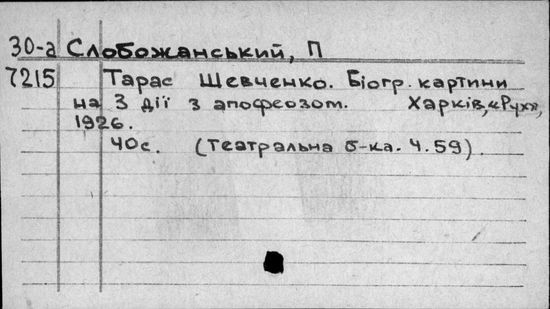 30-а Слобожанський, П
7215 Тарас Шевченко. Біогр. картини
на 3 дії з апофеозом. Харків, «Рух»,
1926.
40с. (Театральна б-ка. Ч.59).